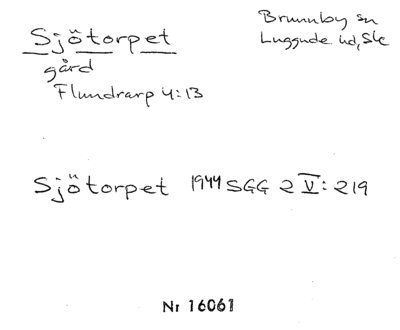 Sjötorpet
Brunnby sn
Luggude hd, Sk
gård
Flundrarp 4:13
Sjötorpet 1944 SGG 2 V: 219
Nr 16061